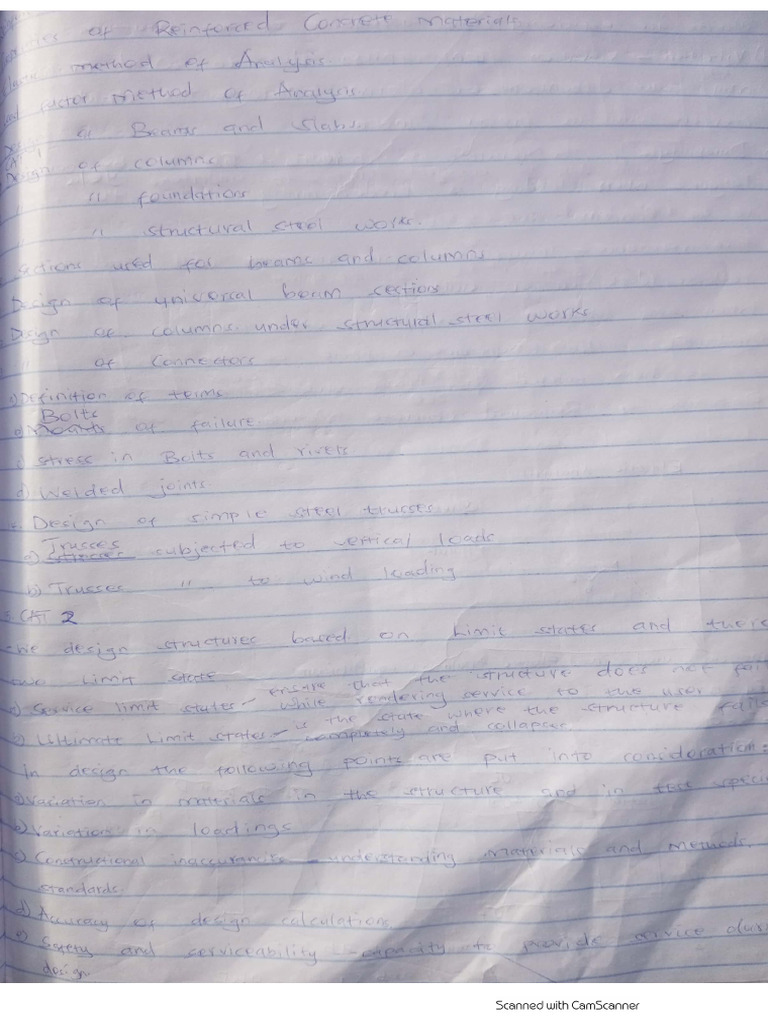 of Reinforced Concrete Materials
method of Analysis
factor method of Analysis
Design of Beams and slabs
Design of columns
" foundations
" structural steel works.
used for beams and columns
Design of universal beam section
Dsign of columns under structural steel works
" of Connectors
a) Definition of terms
Bolts
of failure
c) stress in Bolts and rivets
d) Welded joints
Design of simple steel trusses
Trusses
a) subjected to vertical loads
b) Trusses " to wind loading
CAT 2
design structures based on Limit states and there
two limit state
ensure that the structure does not fail
a) Service limit states - while rendering service to the user
is the state where the structure fails
b) Ultimate Limit states - completely and collapses
In design the following points are put into consideration:
a) Variation in materials in the structure and in test
b) Variation in loadings
c) Constructional - understanding materials and methods,
standards.
d) Accuracy of design calculations
e) Safety and servicability - capacity to provide service
design